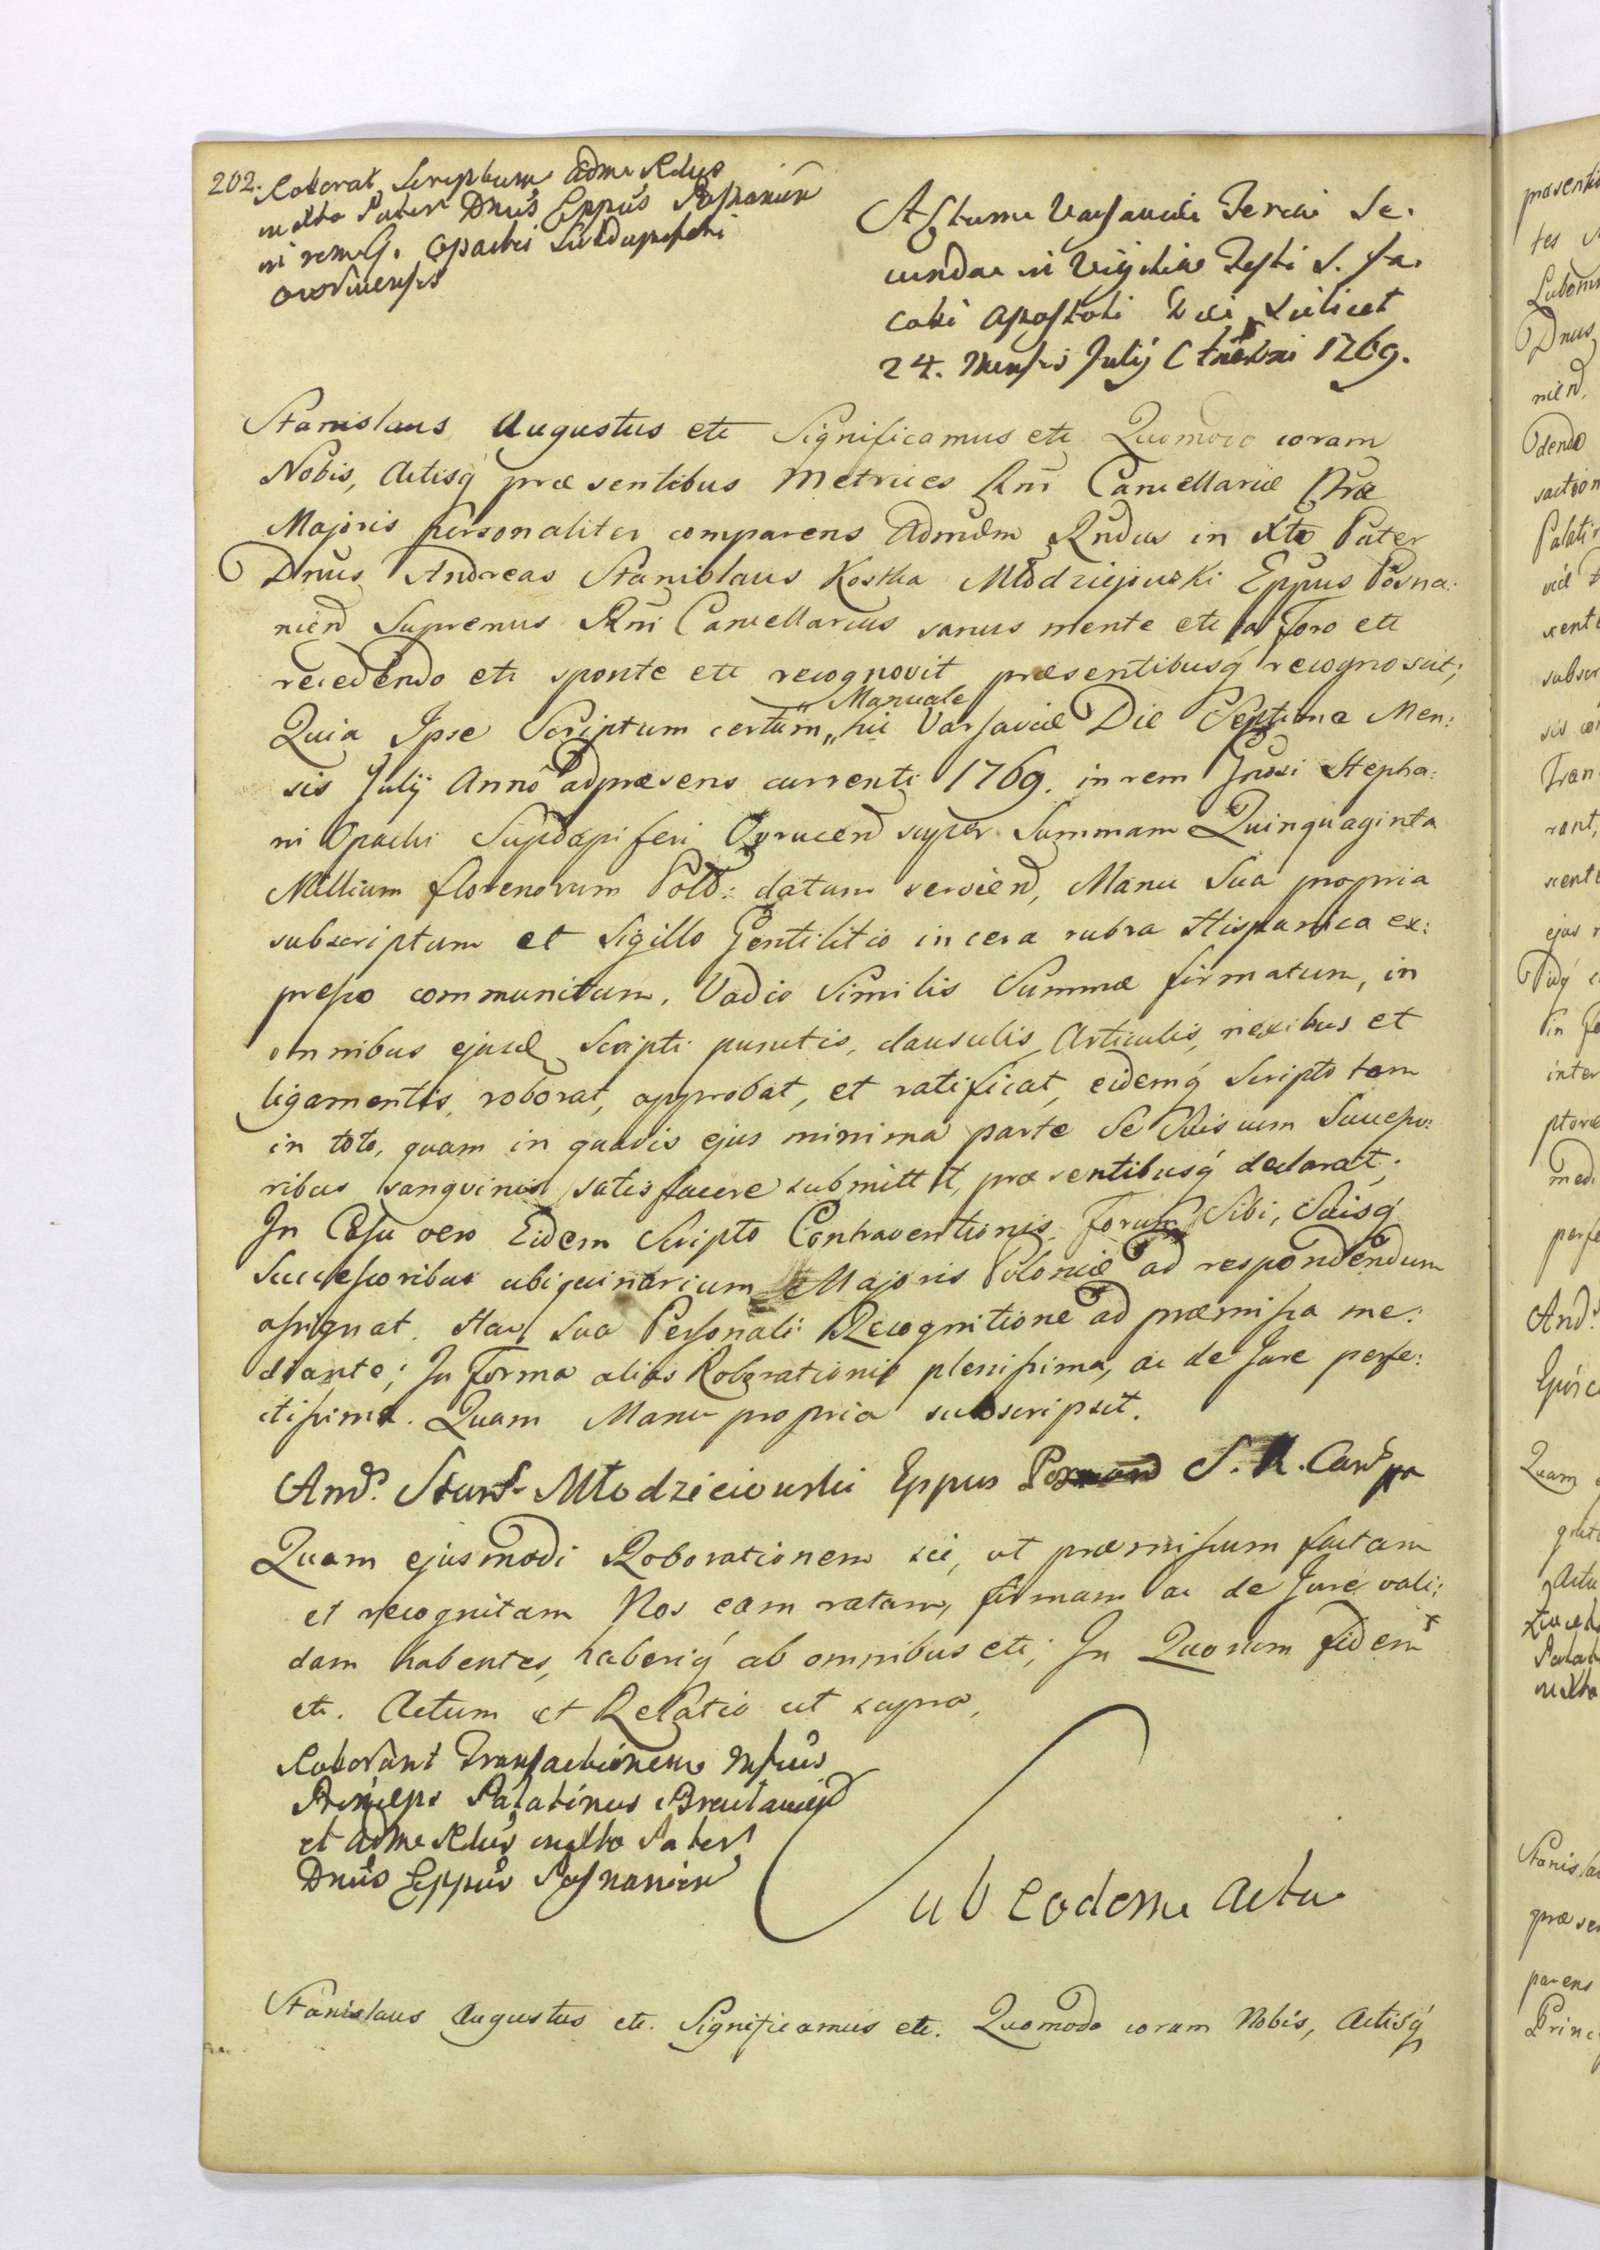 202.
Roborat Scriptum Adme Rdus
in Xto Pater Dnus Eppus Posnanien
in rem G. Opacki Subdapiferi
Owrucensis
Actum Varsaviæ Feria Se-
cunda in Vigilia Festi S. Ja-
cobi Apostoli Die Scilicet
24. Mensis Julij Anno Dni 1769.
Stanislaus Augustus etc Significamus etc Quomodo coram
Nobis, Actisq́ præsentibus Metrices Rni Cancellariæ Nræ
Majoris personaliter comparens Admdm Rndus in Xto Pater
Dnus Andreas Stanislaus Kostka Młodziejowski Eppus Posna:
nień Supremus Rni Cancellarius sanus mente etc a Foro etc
recedendo etc sponte etc recognovit præsentibusq́ recognoscit;
Quia Ipse Scriptum certum „ Manuale hic Varsaviæ Die Septima Men:
sis Julij Anno adpræsens currenti 1769. in rem Gnosi Stepha:
ni Opacki Subdapiferi Ovrucen super Summam Quinquaginta
Millium florenorum Pold: datum servien, Manu Sua propria
subscriptum et Sigillo Gentilitio in cera rubra Hispanica ex:
presso communitum, Vadio Similis Summæ firmatum, in
omnibus ejusd Scripti punctis, clausulis, Articulis, nexibus et
ligamentis, roborat, approbat, et ratificat, eidemq́ Scripto tam
in toto, quam in quavis ejus minima parte Se Suis cum Successo:
ribus sanguineis satisfacere submittit, præsentibusq́ declarat;
In Casu vero Eidem Scripto Contraventionis Forum Sibi, Suisq́
Successoribus ubiquinarium Majoris Poloniæ ad respondendum
assignat. Hac Sua Personali Recognitione ad præmissa me:
diante; In Forma alias Roborationis plenissima, ac de Jure perfe:
ctissima. Quam Manu propria subscripsit.
And. Stan. Młodzieiowski Eppus S. R. Can. pa
Quam ejusmodi Roborationem sic, ut præmissum factam
et recognitam Nos eam ratam, firmam ac de Jure vali:
dam habentes, haberiq́ ab omnibus etc; In Quorum fidem
etc. Actum et Relatio ut supra,
Roborant Transactionem
Princeps Palatinus
et Adme Rdus in Xto Pater
Dnus Eppus Posnanien
Sub Eodem Actu
Stanislaus Augustus etc. Significamus etc. Quomodo coram Nobis, Actisq́